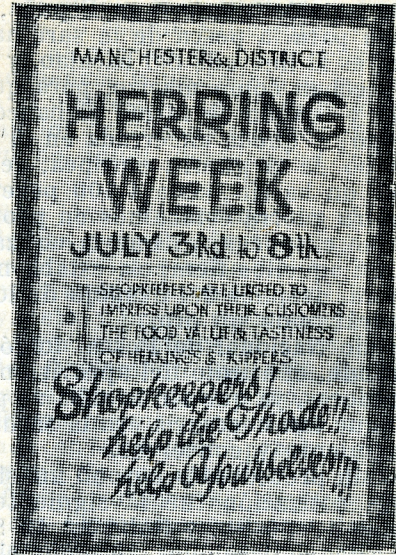 MANCHESTER & DISTRICT
HERRING
WEEK
JULY 3Rd. to 8th.
SHOPKEEPERS ARE URGED TO
IMPRESS UPON THEIR CUSTOMERS
THE FOOD VALUE & TASTINESS
OF HERRINGS & KIPPERS
Shopkeepers!
help the Trade!!
help Yourselves!!!